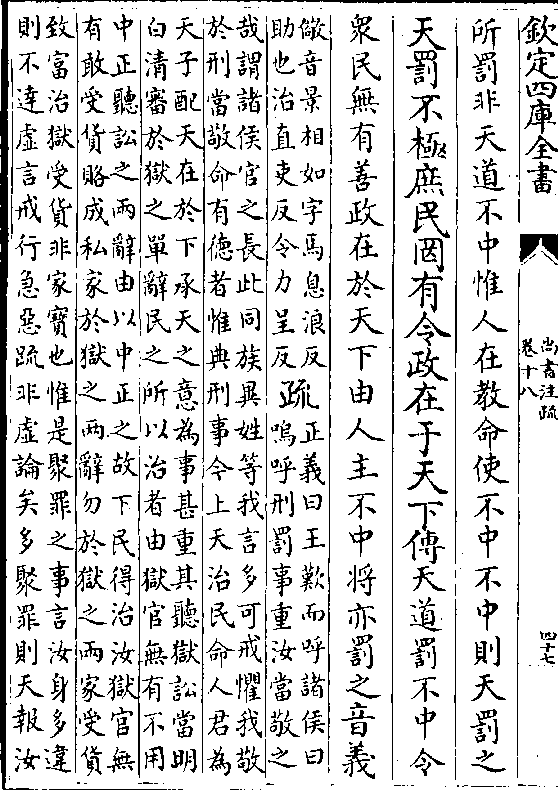 欽定四庫全書
尚書注疏
卷十八
四十七
所罰非天道不中惟人在教命使不中不中則天罰之
天罰不極庶民罔有令政在于天下傳天道罰不中令
衆民無有善政在於天下由人主不中将亦罰之音義
儆音景相如字馬息浪反
助也治直吏反令力呈反
疏
正義曰王歎而呼諸侯曰
嗚呼刑罰事重汝當敬之
哉謂諸侯官之長此同族異姓等我言多可戒懼我敬
於刑當敬命有德者惟典刑事今上天治民命人君為
天子配天在於下承天之意為事甚重其聽獄訟當明
白清審於獄之單辭民之所以治者由獄官無有不用
中正聽訟之兩辭由以中正之故下民得治汝獄官無
有敢受貨賂成私家於獄之兩辭勿於獄之兩家受貨
致富治獄受貨非家寶也惟是聚罪之事言汝身多違
則不達虚言戒行急惡疏非虚論矣多聚罪則天報汝